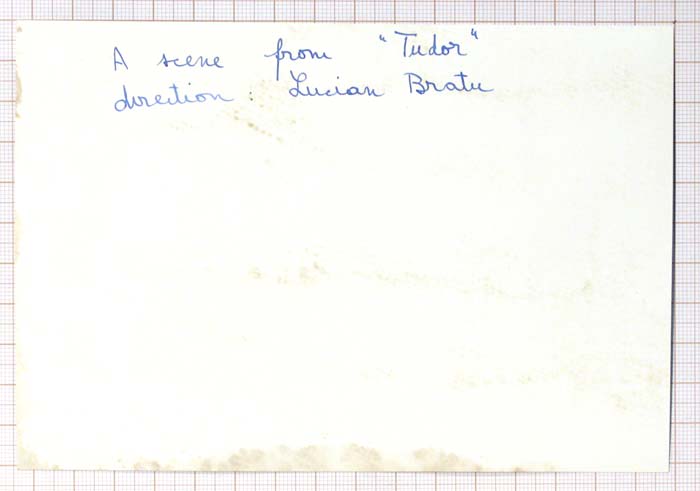 A scene from "Tudor"
direction: Lucian Bratu